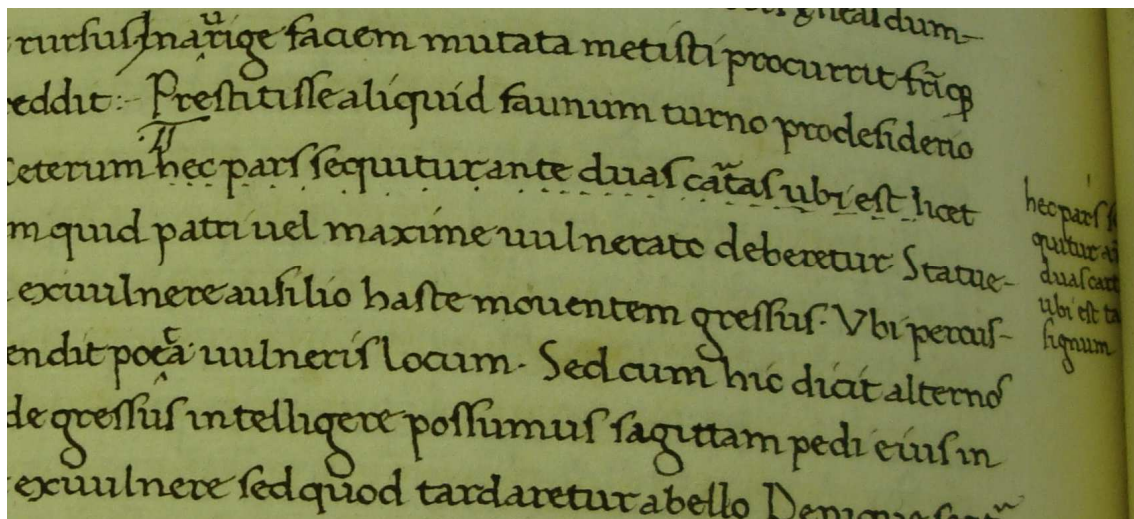 dum
rursus In aurige faciem mutata metisti procurrit fr̄iqꝫ
eddit: Prestitisse aliquid faunum turno prodesiderio
ceterum hec pars sequitur ante duas cartas ubi est licet
m quid patri uel maxime uulnerato deberetur Statue-
exuulnere ausilio haste mouentem gressus. Vbi percus-
endit poeta uulneris locum. Sed cum hic dicit alternos
de gressus intelligere possumus sagittam pedi eius in
exuulnere sed quod tardaretur abello
hec pars se
quitur an
duas cart
ubi est ta
signum